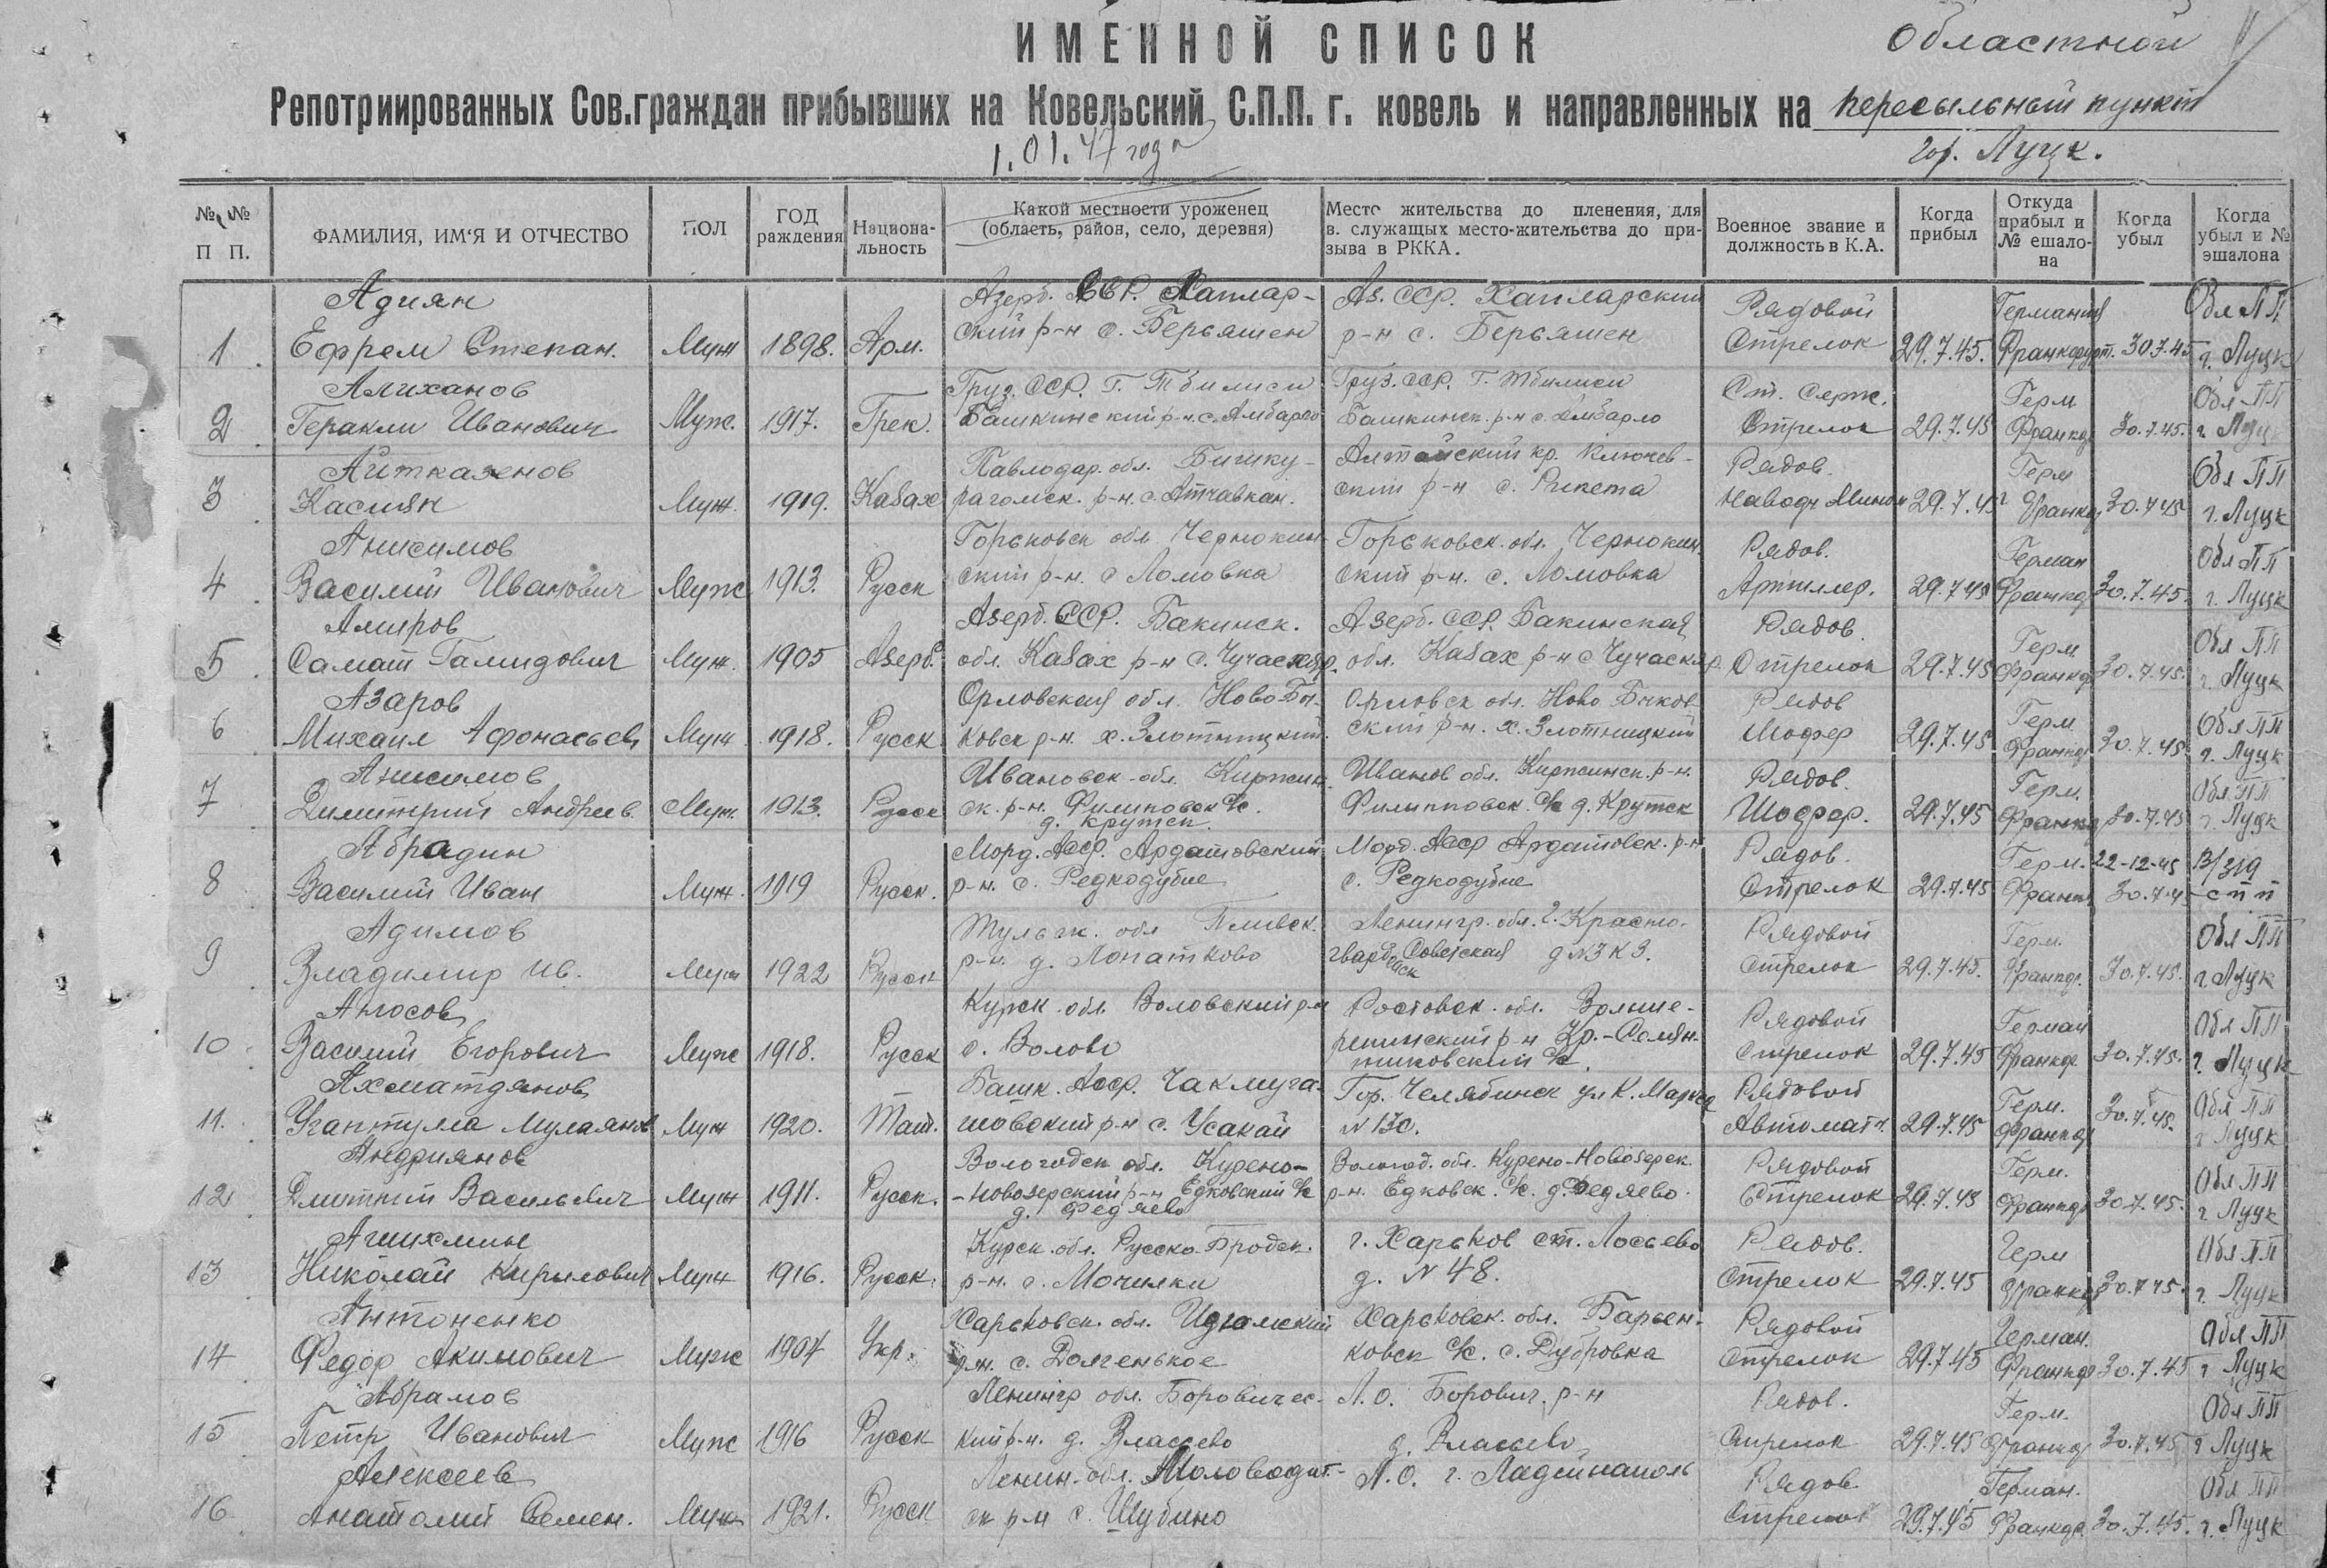 ИМЕННОЙ СПИСОК
Областной
Репотриированных Сов.граждан прибывших на Ковельский С.П.П. г. ковель и направленных на пересыльный пункт
1.01.47 года
гор. Луцк.
№ № П П. ФАМИЛИЯ, ИМ'Я И ОТЧЕСТВО ПОЛ ГОД раждения Национальность Какой местности уроженец (область, район, село, деревня) Место жительства до пленения, для в. служащих место-жительства до призыва в РККА. Военное звание и должность в К.А. Когда прибыл Откуда прибыл и № ешалона Когда убыл Когда убыл и № эшалона
Адиян Азерб. ССР. Хаплар- Аз. ССР. Хапларский Рядовой Германия Обл ПП
1 Ефрем Степан. Муж 1898. Арм. ский р-н с. Бериашен р-н с. Бериашен Стрелок 29.7.45. Франкфурт. 30.7.45 г. Луцк
Алиханов Груз. ССР. г. Тбилиси Груз. ССР. г. Тбилиси Ст. Серж. Герм Обл ПП
2 Геракли Иванович Муж. 1917. Грек. Башкинский р-н с. Амбарло Башкинск. р-н с. Амбарло Стрелок 29.7.45 Франкф 30.7.45. г. Луцк
Айтказенов Павлодар. обл. Бишку- Алтайский кр. Ключев- Рядов. Герм Обл ПП
3 Касиян Муж. 1919. Казах рагомск. р-н. с. Атчавкан. ский р-н с. Рикета Наводч Мином 29.7.45 Франкф 30.7.45 г. Луцк
Анисимов Горьковск обл Чернокин Горьковск. обл. Чернокин Рядов. Герман Обл ПП
4 Василий Иванович Муж 1913. Русск ский р-н. с Ломовка ский р-н. с. Ломовка Артиллер. 29.7.45 Франкф 30.7.45. г. Луцк
Амиров Азерб. ССР. Бакинск. Азерб. ССР. Бакинская Рядов. Герм Обл ПП
5 Самат Гамидович Муж. 1905 Азерб. обл. Казах р-н с. обл. Казах р-н с Стрелок 29.7.45 Франкф 30.7.45. г. Луцк
Азаров Орловская обл. Ново Бы- Орловск обл. Ново Быков- Рядов Герм Обл ПП
6 Михаил Афонасьев Муж. 1918. Русск ковск р-н. х. Злотницкий. ский р-н. х. Злотницкий Шофер 29.7.45 Франкф 30.7.45 г. Луцк
Анисимов Ивановск. обл. Киржин- Иванов обл. Киржинск. р-н. Рядов. Герм. Обл ПП
7 Димитрий Андреев. Муж. 1913. Русск ск. р-н. Филиповск с/с. Филипповск. с/с д. Крутск Шофер. 29.7.45 Франкф 30.7.45 г. Луцк
д. крутск.
Абрадин Морд. Асср. Ардатовский Морд. Асср Ардатовск. р-н Рядов. Герм. 22-12-45 В/319
8 Василий Иван Муж. 1919 Русск. р-н. с. Редкодубие с. Редкодубие Стрелок 29.7.45 Франкф 30.7.45 СПП
Адимов Тульск. обл Пливск. Ленингр. обл. г. Красно- Рядовой Герм. Обл ПП
9 Владимир Ив. Муж 1922 Русск р-н. д. Лопатково гвардейск Советская д N3 к 3. Стрелок 29.7.45. Франкф. 30.7.45. г. Луцк
Аносов Курск. обл. Воловский р-н Ростовск. обл. Больше- Рядовой Герман Обл ПП
10 Василий Егорович Муж 1918. Русск с. Волово репинский р-н Кр.-Семян- Стрелок 29.7.45 Франкф. 30.7.45. г. Луцк
тиковский с/с.
Ахматдянов Башк. Асср. Чакмуга- Гор. Челябинск ул К. Маркса Рядовой Герм. Обл ПП
11. Угантулла Мулаянов Муж 1920. Тат. шовский р-н с. Усакай N 130. Автомат. 29.7.45 Франкф 30.7.45. г Луцк
Андриянов Вологодск обл. Курено- Вологод. обл. Курено-Новозерск. Рядовой Герм. Обл ПП
12 Дмитрий Васильевич Муж 1911. Русск. -новозерский р-н Едковский с/с р-н. Едковск. с/с. д. Федяево. Стрелок 29.7.45 Франкф 30.7.45. г. Луцк
д. Федяево
Агишхмин Курск. обл. Русско-Бродск. г. Харьков ст. Лосьево Рядов. Герм Обл ПП
13 Николай Кирылович Муж 1916. Русск. р-н. с. Мочилки д. N 48. Стрелок 29.7.45 Франкф 30.7.45. г. Луцк
Антоненко Харьковск. обл. Изюмский Харьковск. обл. Барвен- Рядовой Герман. Обл ПП
14 Федор Акимович Муж 1904 Укр. р-н. с. Долгенькое ковск с/с. с. Дубровка Стрелок 29.7.45 Франкф 30.7.45 г Луцк
Абрамов Ленингр обл. Боровичес- Л.О. Борович. р-н Рядов. Герм. Обл ПП
15 Петр Иванович Муж 1916 Русск кий р-н. д. Власьево д. Власьево Стрелок 29.7.45 Франкф 30.7.45 г Луцк
Алексеев Ленин. обл. Л.О. г. Ладейнаполь Рядов. Герман. Обл ПП
16 Анатолий Семен. Муж 1921. Русск ск р-н с. Шубино Стрелок 29.7.45 Франкф. 30.7.45. г. Луцк